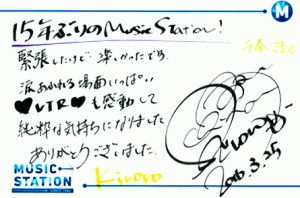 M
15年ぶりのMusic Station!
緊張したけど楽しかったです。
涙あふれる場面いっぱい
♥VTR♥も感動して
純粋な気持ちになりました
ありがとうございました。
Kiroro
2020.3.25
MUSIC
STATION